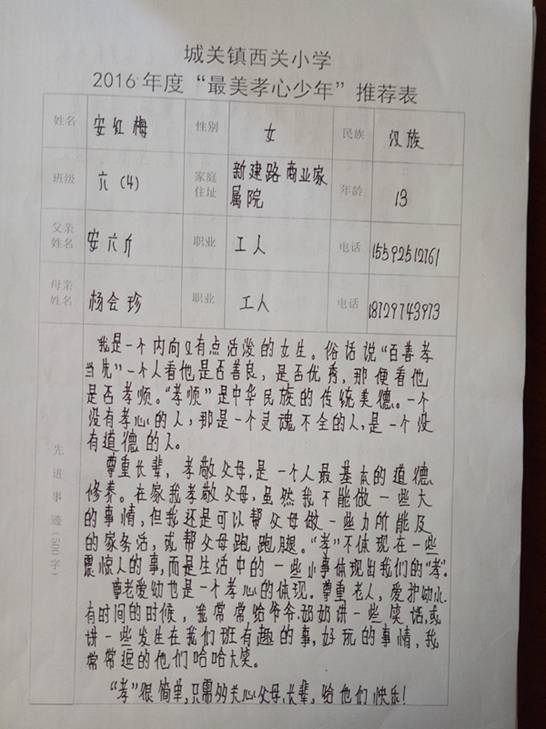 城关镇西关小学
2016年度“最美孝心少年”推荐表
姓名 安红梅 性别 女 民族 汉族
班级 六(4) 家庭住址 新建路商业家属院 年龄 13
父亲姓名 安六斤 职业 工人 电话 15592512761
母亲姓名 杨会珍 职业 工人 电话 18729743973
先进事迹(500字)
我是一个内向又有点活泼的女生。俗话说“百善孝
当先”一个人看他是否善良,是否优秀,那便看他
是否孝顺。“孝顺”是中华民族的传统美德。一个
没有孝心的人,那是一个灵魂不全的人,是一个没
有道德的人。
尊重长辈,孝敬父母,是一个人最基本的道德
修养。在家我孝敬父母,虽然我不能做一些大
的事情,但我还是可以帮父母做一些力所能及
的家务活,或帮父母跑跑腿。“孝”不体现在一些
震惊人的事,而是生活中的一些小事体现出我们的“孝”。
尊老爱幼也是一个孝心的体现。尊重老人,爱护幼小
有时间的时候,我常常给爷爷.奶奶讲一些笑话,或
讲一些发生在我们班有趣的事,好玩的事情,我
常常逗的他们哈哈大笑。
“孝”很简单,只需的关心父母,长辈,给他们快乐!